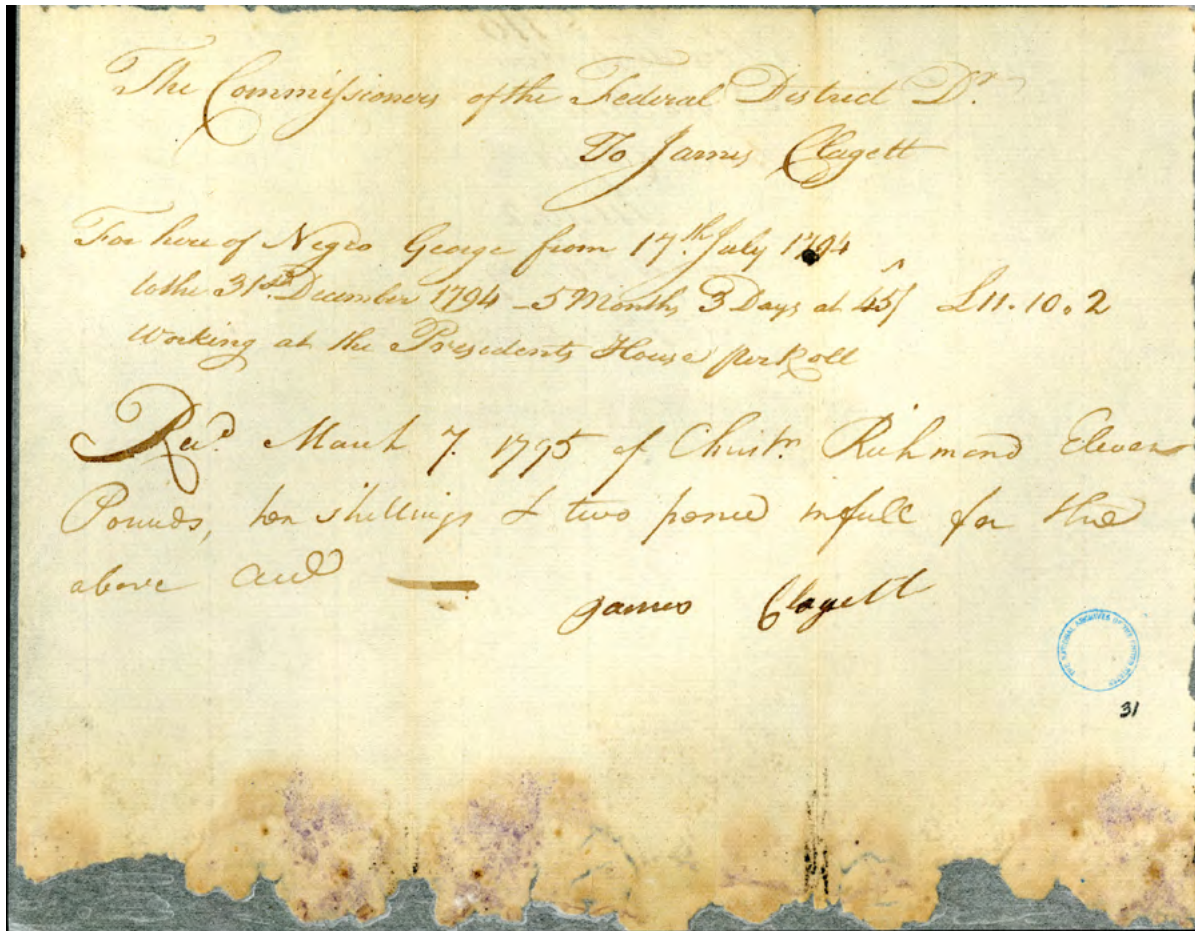 The Commissioners of the Federal District Dr.
To James Clagett
For hire of Negro George from 17th. July 1794
to the 31st. December 1794 - 5 Months 3 Days at 45/ £11.10.2
Working at the Presidents House per Roll
Recd. March 7. 1795 of Christr. Richmond Eleven
Pounds, ten shillings & two pence in full for the
above acct
James Clagett
THE NATIONAL ARCHIVES OF THE UNITED STATES
31